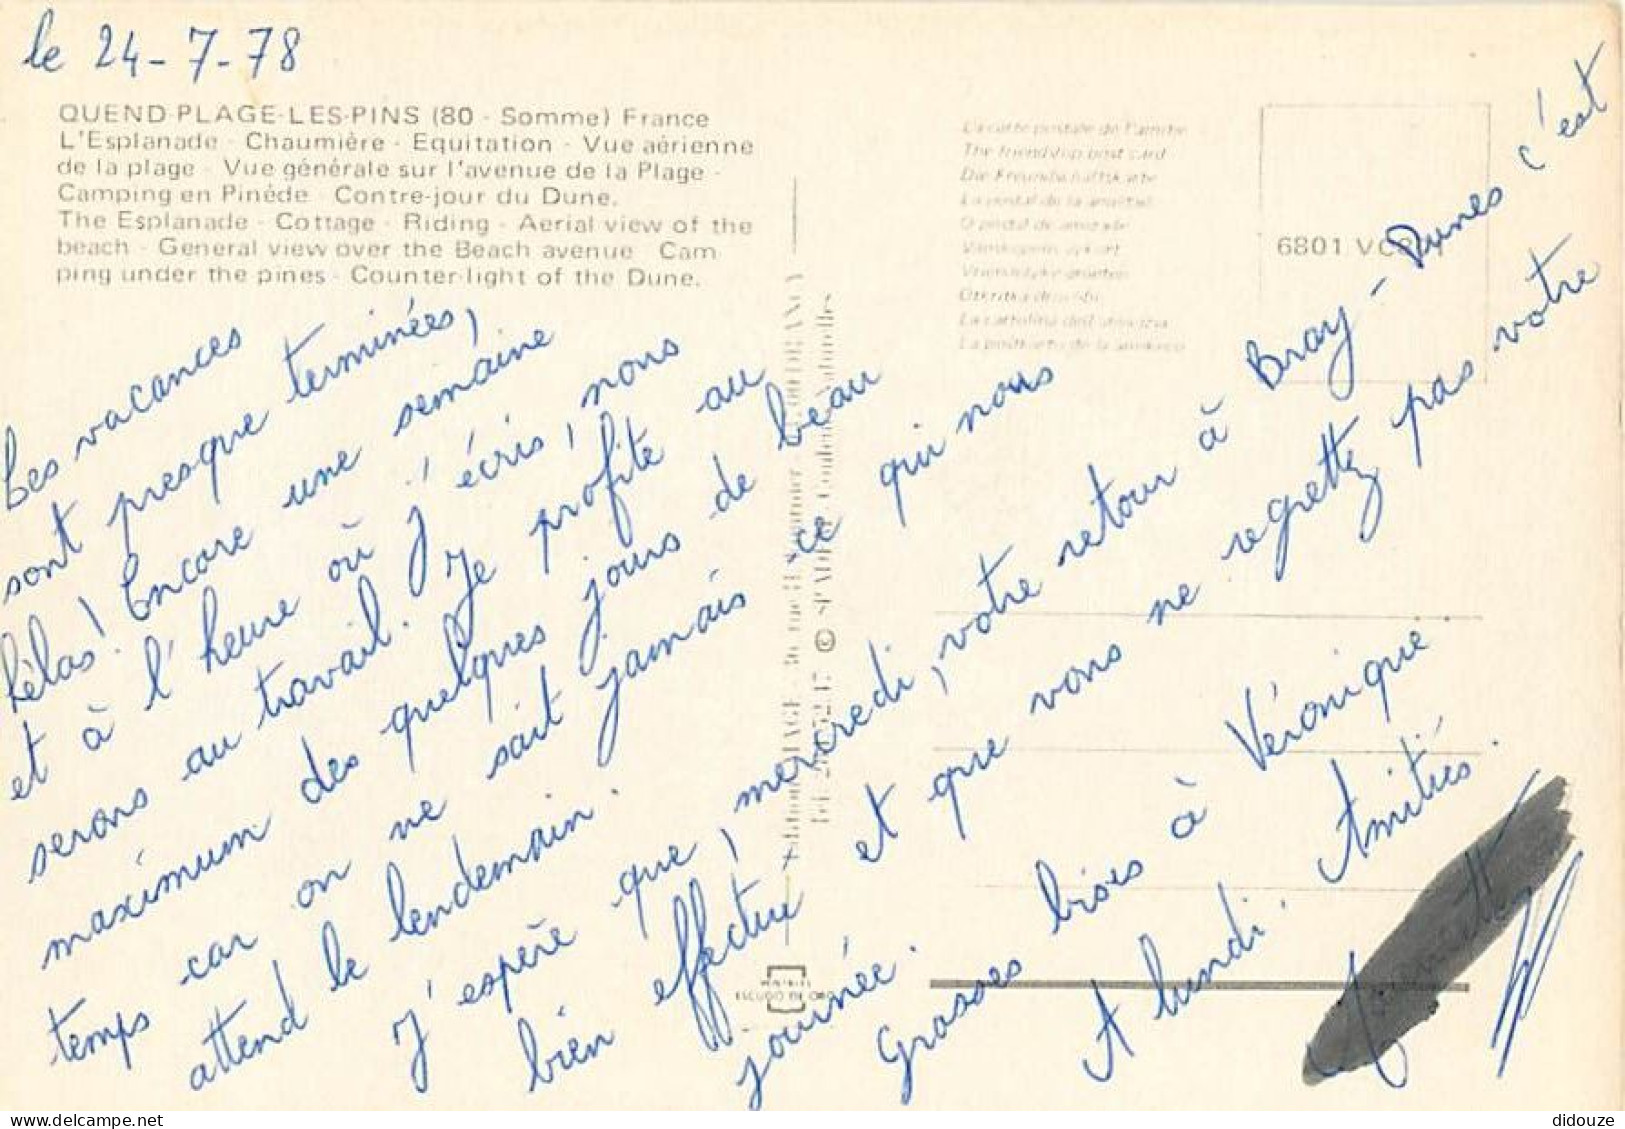 le 24-7-78
QUEND-PLAGE-LES-PINS (80 - Somme) France
L'Esplanade - Chaumière - Equitation - Vue aérienne
de la plage - Vue générale sur l'avenue de la Plage -
Camping en Pinède - Contre-jour du Dune.
The Esplanade - Cottage - Riding - Aerial view of the
beach - General view over the Beach avenue Cam
ping under the pines - Counter-light of the Dune.
La carte postale de l'amitié
The friendship post card
Die Freundschaftskarte
La postal de la amistad
O postal da amizade
Vänskapens vykort
La cartolina dell'amicizia
6801 VC
Les vacances
sont presque terminées,
hélas! Encore une semaine
et à l'heure où j'écris, nous
serons au travail. Je profite au
maximum des quelques jours de beau
temps car on ne sait jamais ce qui nous
attend le lendemain.
J'espère que, mercredi, votre retour à Bray-Dunes c'est
bien effectué et que vous ne regrettez pas votre
journée.
Grosses bises à Véronique
A lundi. Amitiés.
MINIATURE
ESCUDO DE ORO
didouze